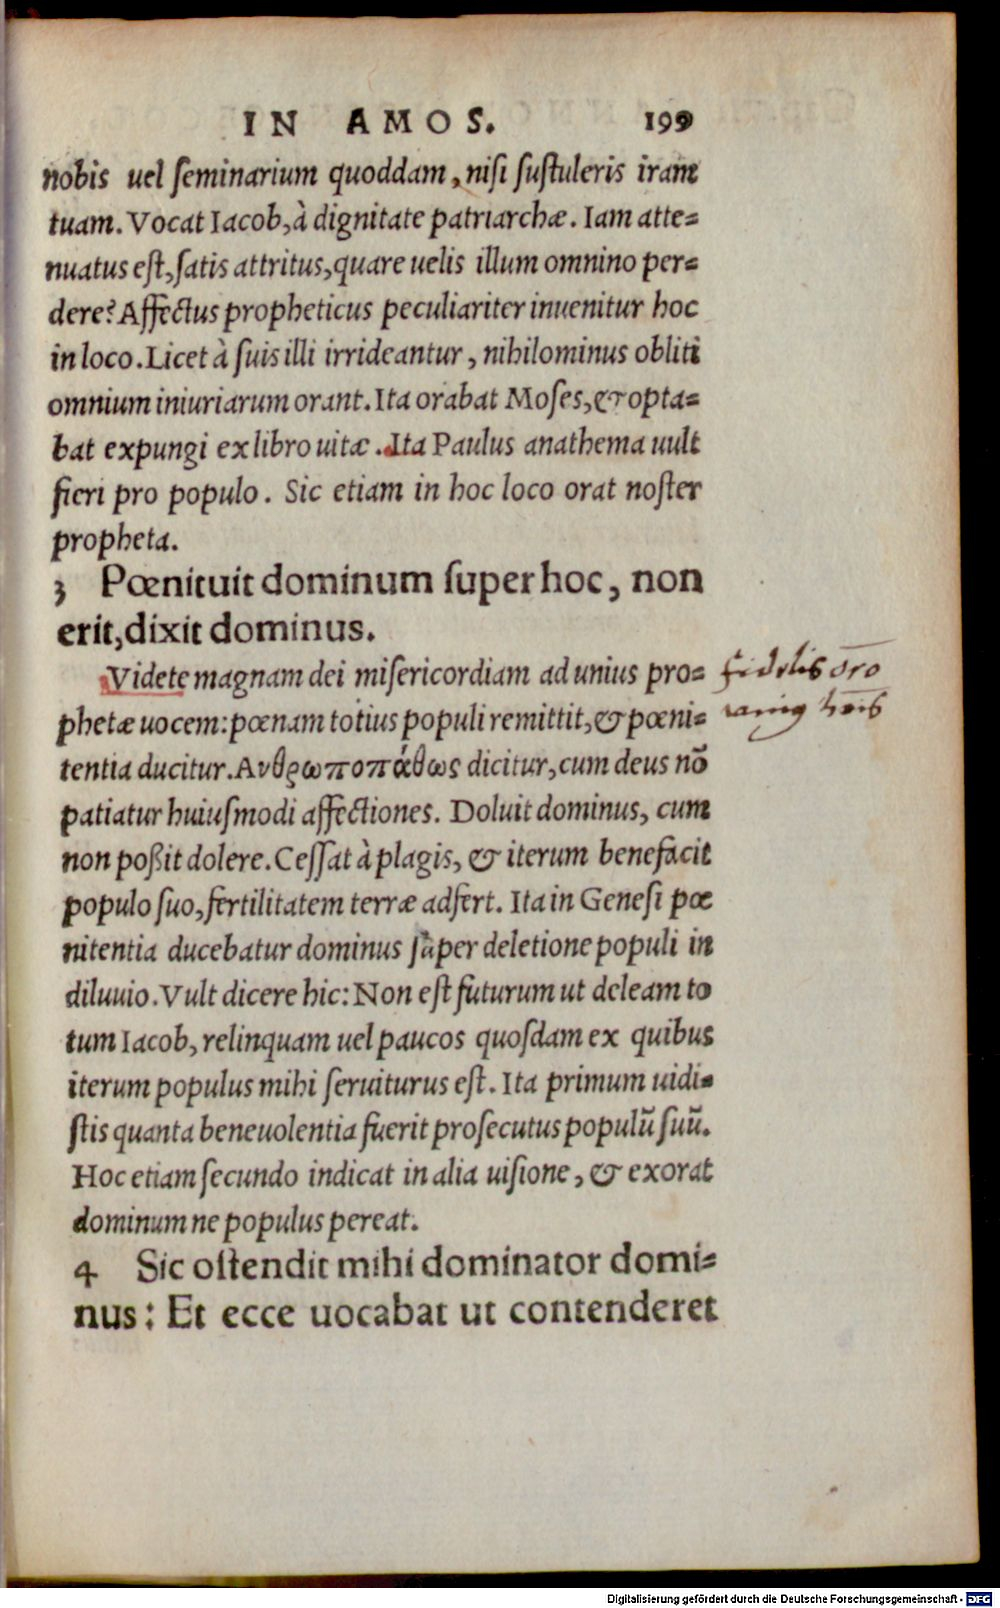 IN AMOS. 199
nobis uel ſeminarium quoddam, niſi ſuſtuleris iram
tuam. Vocat Iacob, à dignitate patriarchæ. Iam atte=
nuatus eſt, ſatis attritus, quare uelis illum omnino per=
dere? Affectus propheticus peculiariter inuenitur hoc
in loco. Licet à ſuis illi irrideantur, nihilominus obliti
omnium iniuriarum orant. Ita orabat Moſes, & opta=
bat expungi ex libro uitæ. Ita Paulus anathema uult
fieri pro populo. Sic etiam in hoc loco orat noſter
propheta.
3 Pœnituit dominum ſuper hoc, non
erit, dixit dominus.
Videte magnam dei miſericordiam ad unius pro=
phetæ uocem: pœnam totius populi remittit, & pœni=
tentia ducitur. Ανθρωποπάθως dicitur, cum deus nō
patiatur huiuſmodi affectiones. Doluit dominus, cum
non poßit dolere. Ceſſat à plagis, & iterum benefacit
populo ſuo, fertilitatem terræ adfert. Ita in Geneſi pœ
nitentia ducebatur dominus ſuper deletione populi in
diluuio. Vult dicere hic: Non eſt futurum ut deleam to
tum Iacob, relinquam uel paucos quoſdam ex quibus
iterum populus mihi ſeruiturus eſt. Ita primum uidi=
ſtis quanta beneuolentia fuerit proſecutus populū ſuū.
Hoc etiam ſecundo indicat in alia uiſione, & exorat
dominum ne populus pereat.
4 Sic oſtendit mihi dominator domi=
nus: Et ecce uocabat ut contenderet
fidelis
Digitalisierung gefördert durch die Deutsche Forschungsgemeinschaft - DFG